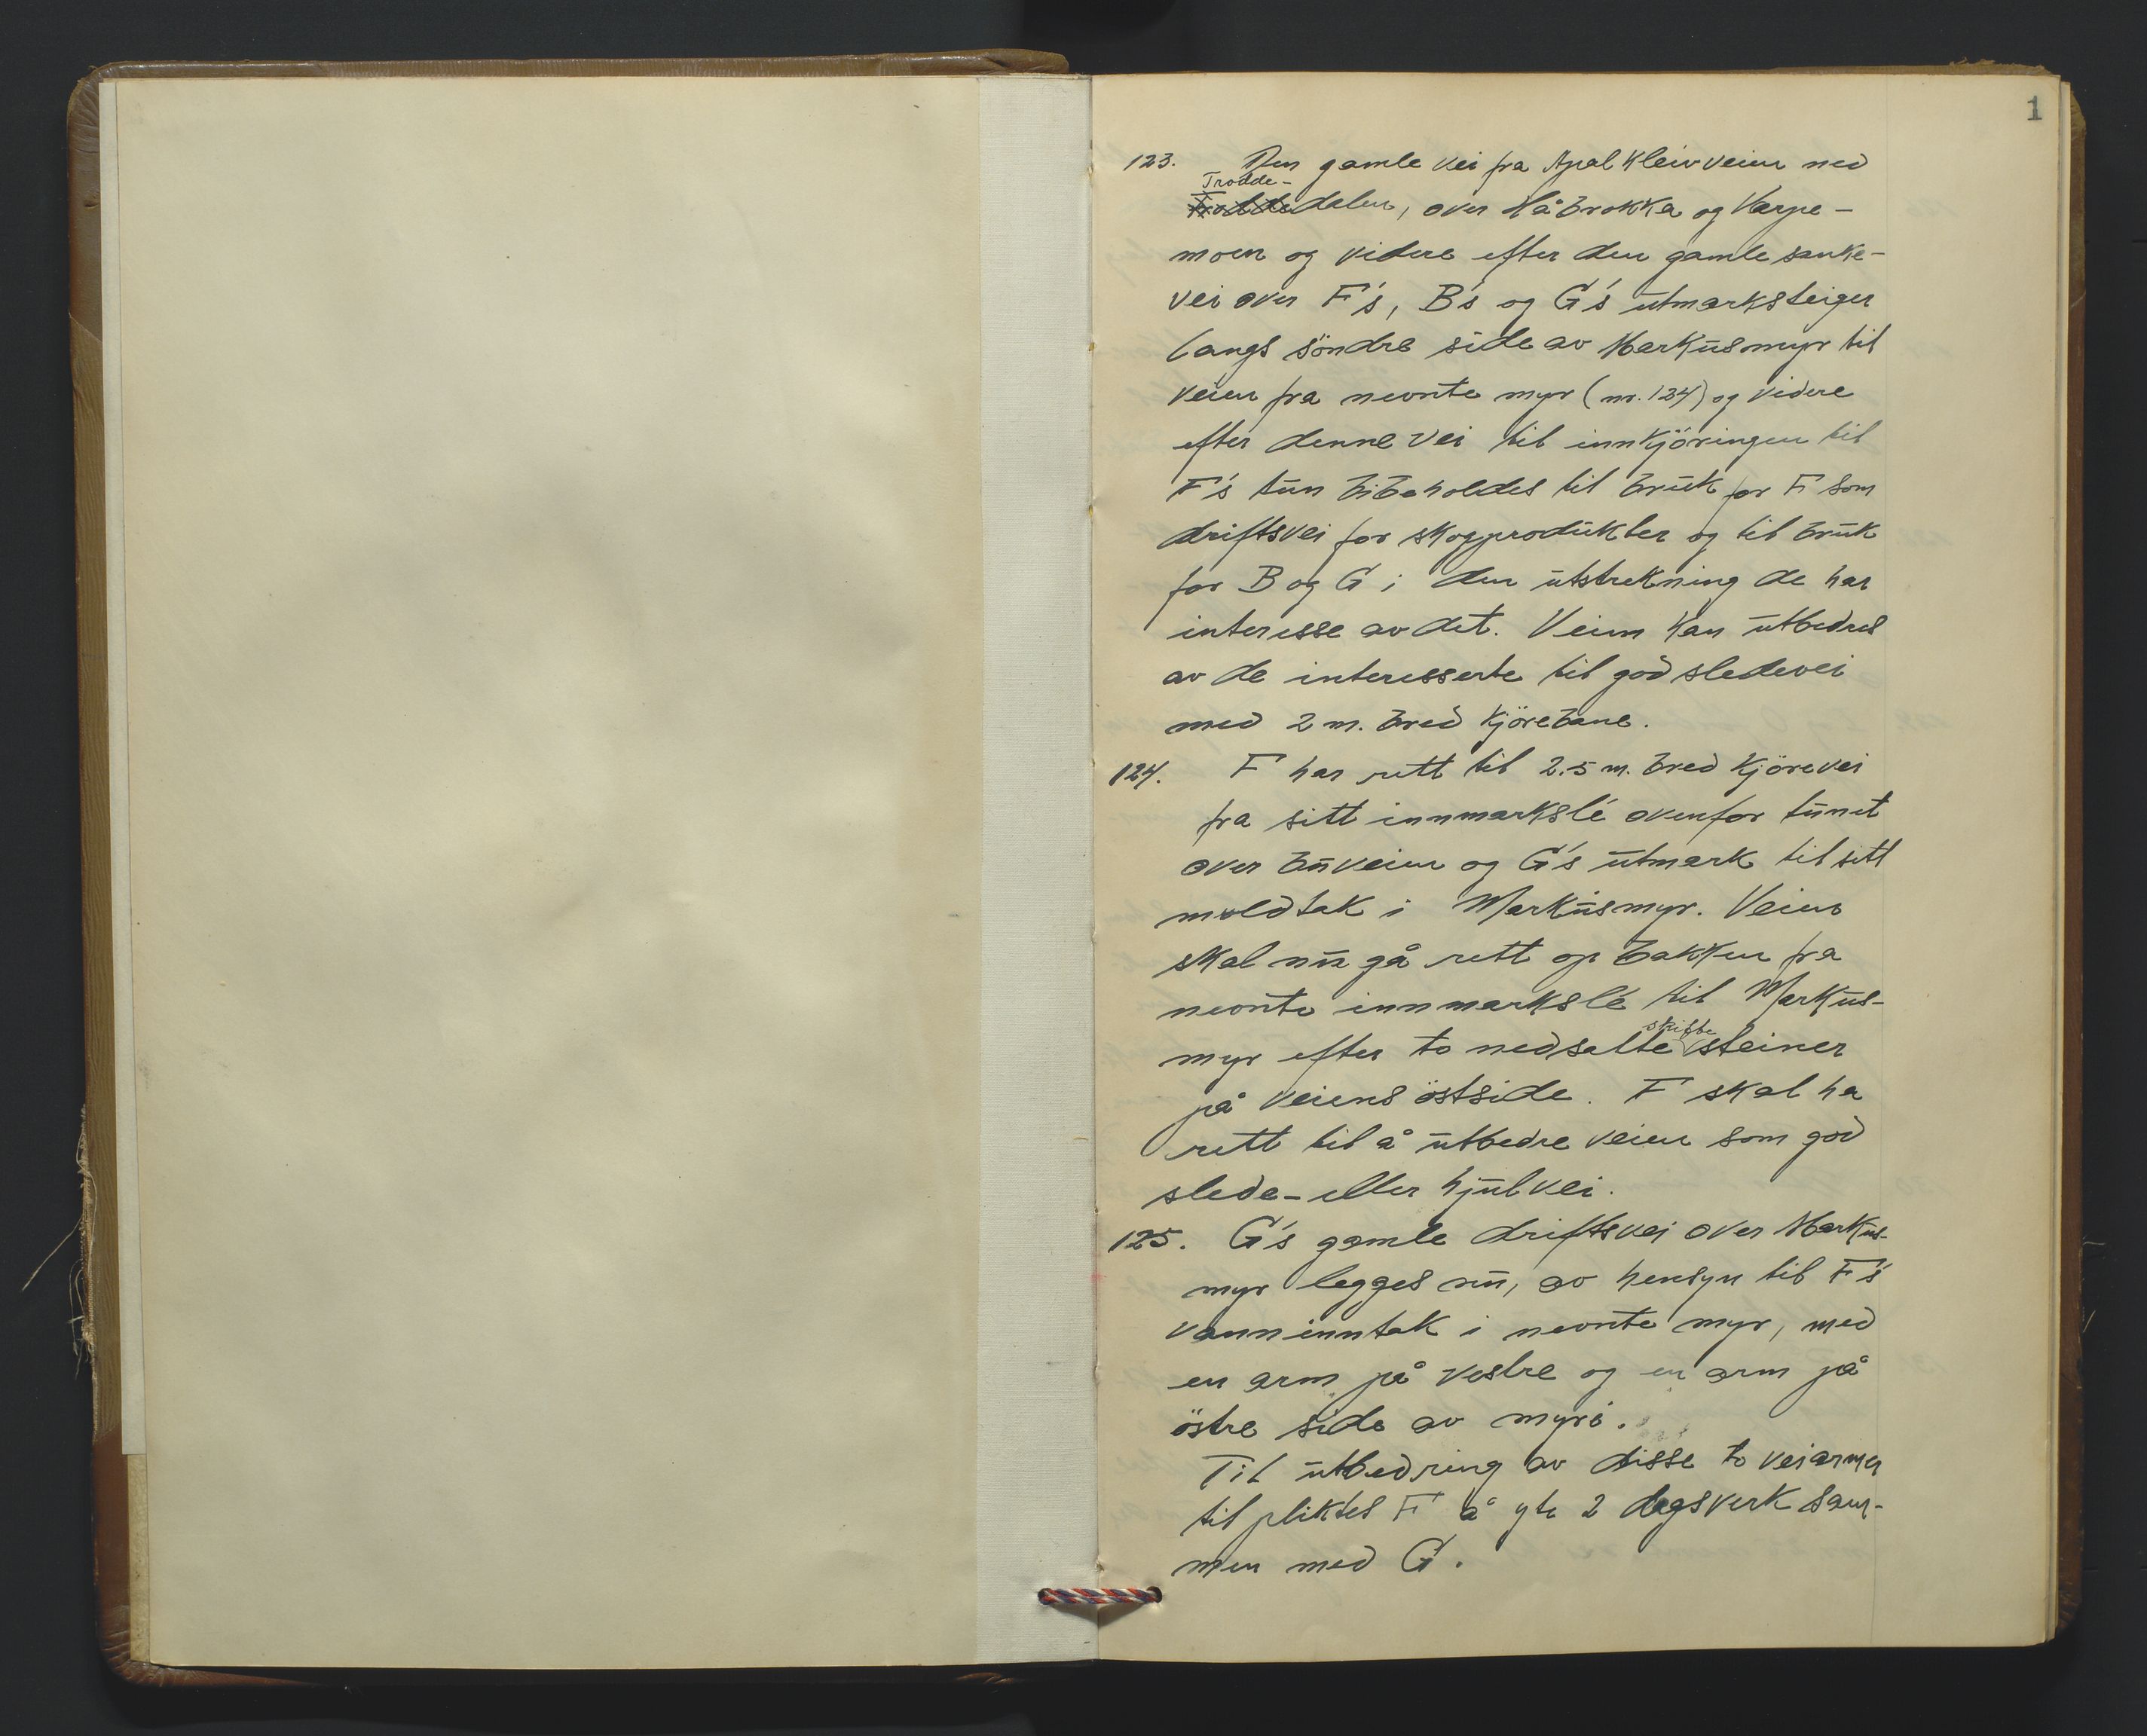 1
123. Den gamle vei fra Apalkleivveien ned
Trodde-
dalen, over Håbrokka og Varpe-
moen og videre efter den gamle sanke-
vei over F's, B's og G's utmarksteiger
langs söndre side av Markusmyr til
veien fra nevnte myr (nr. 124) og videre
efter denne vei til innkjöringen til
F's tun bibeholdes til bruk for F som
driftsvei for skogprodukter og til bruk
for B og G i den utstrekning de har
interesse av det. Veien kan utbedres
av de interesserte til god sledevei
med 2 m. bred kjörebane.
124. F har rett til 2.5 m. bred kjörevei
fra sitt innmarkslé ovenfor tunet
over buveien og G's utmark til sitt
moldtak i Markusmyr. Veien
skal nu gå rett op bakken fra
nevnte innmarkslé til Markus-
skifte
myr efter to nedsatte steiner
på veiens östside. F skal ha
rett til å utbedre veien som god
slede- eller hjulvei.
125. G's gamle driftsvei over Markus-
myr legges nu, av hensyn til F's
vanninntak i nevnte myr, med
en arm på vestre og en arm på
östre side av myri.
Til utbedring av disse to veiarmer
tilpliktes F å yte 2 dagsverk sam-
men med G.